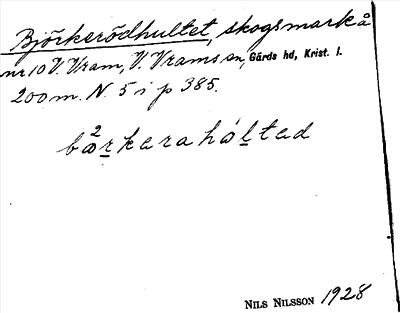 Björkerödhultet, skogsmark å
nr 10 V. Vram, V. Vrams sn, Gärds hd, Krist. l.
200 m. N. 5 i p 385.
bœ²rkarahóltad
NILS NILSSON 1928